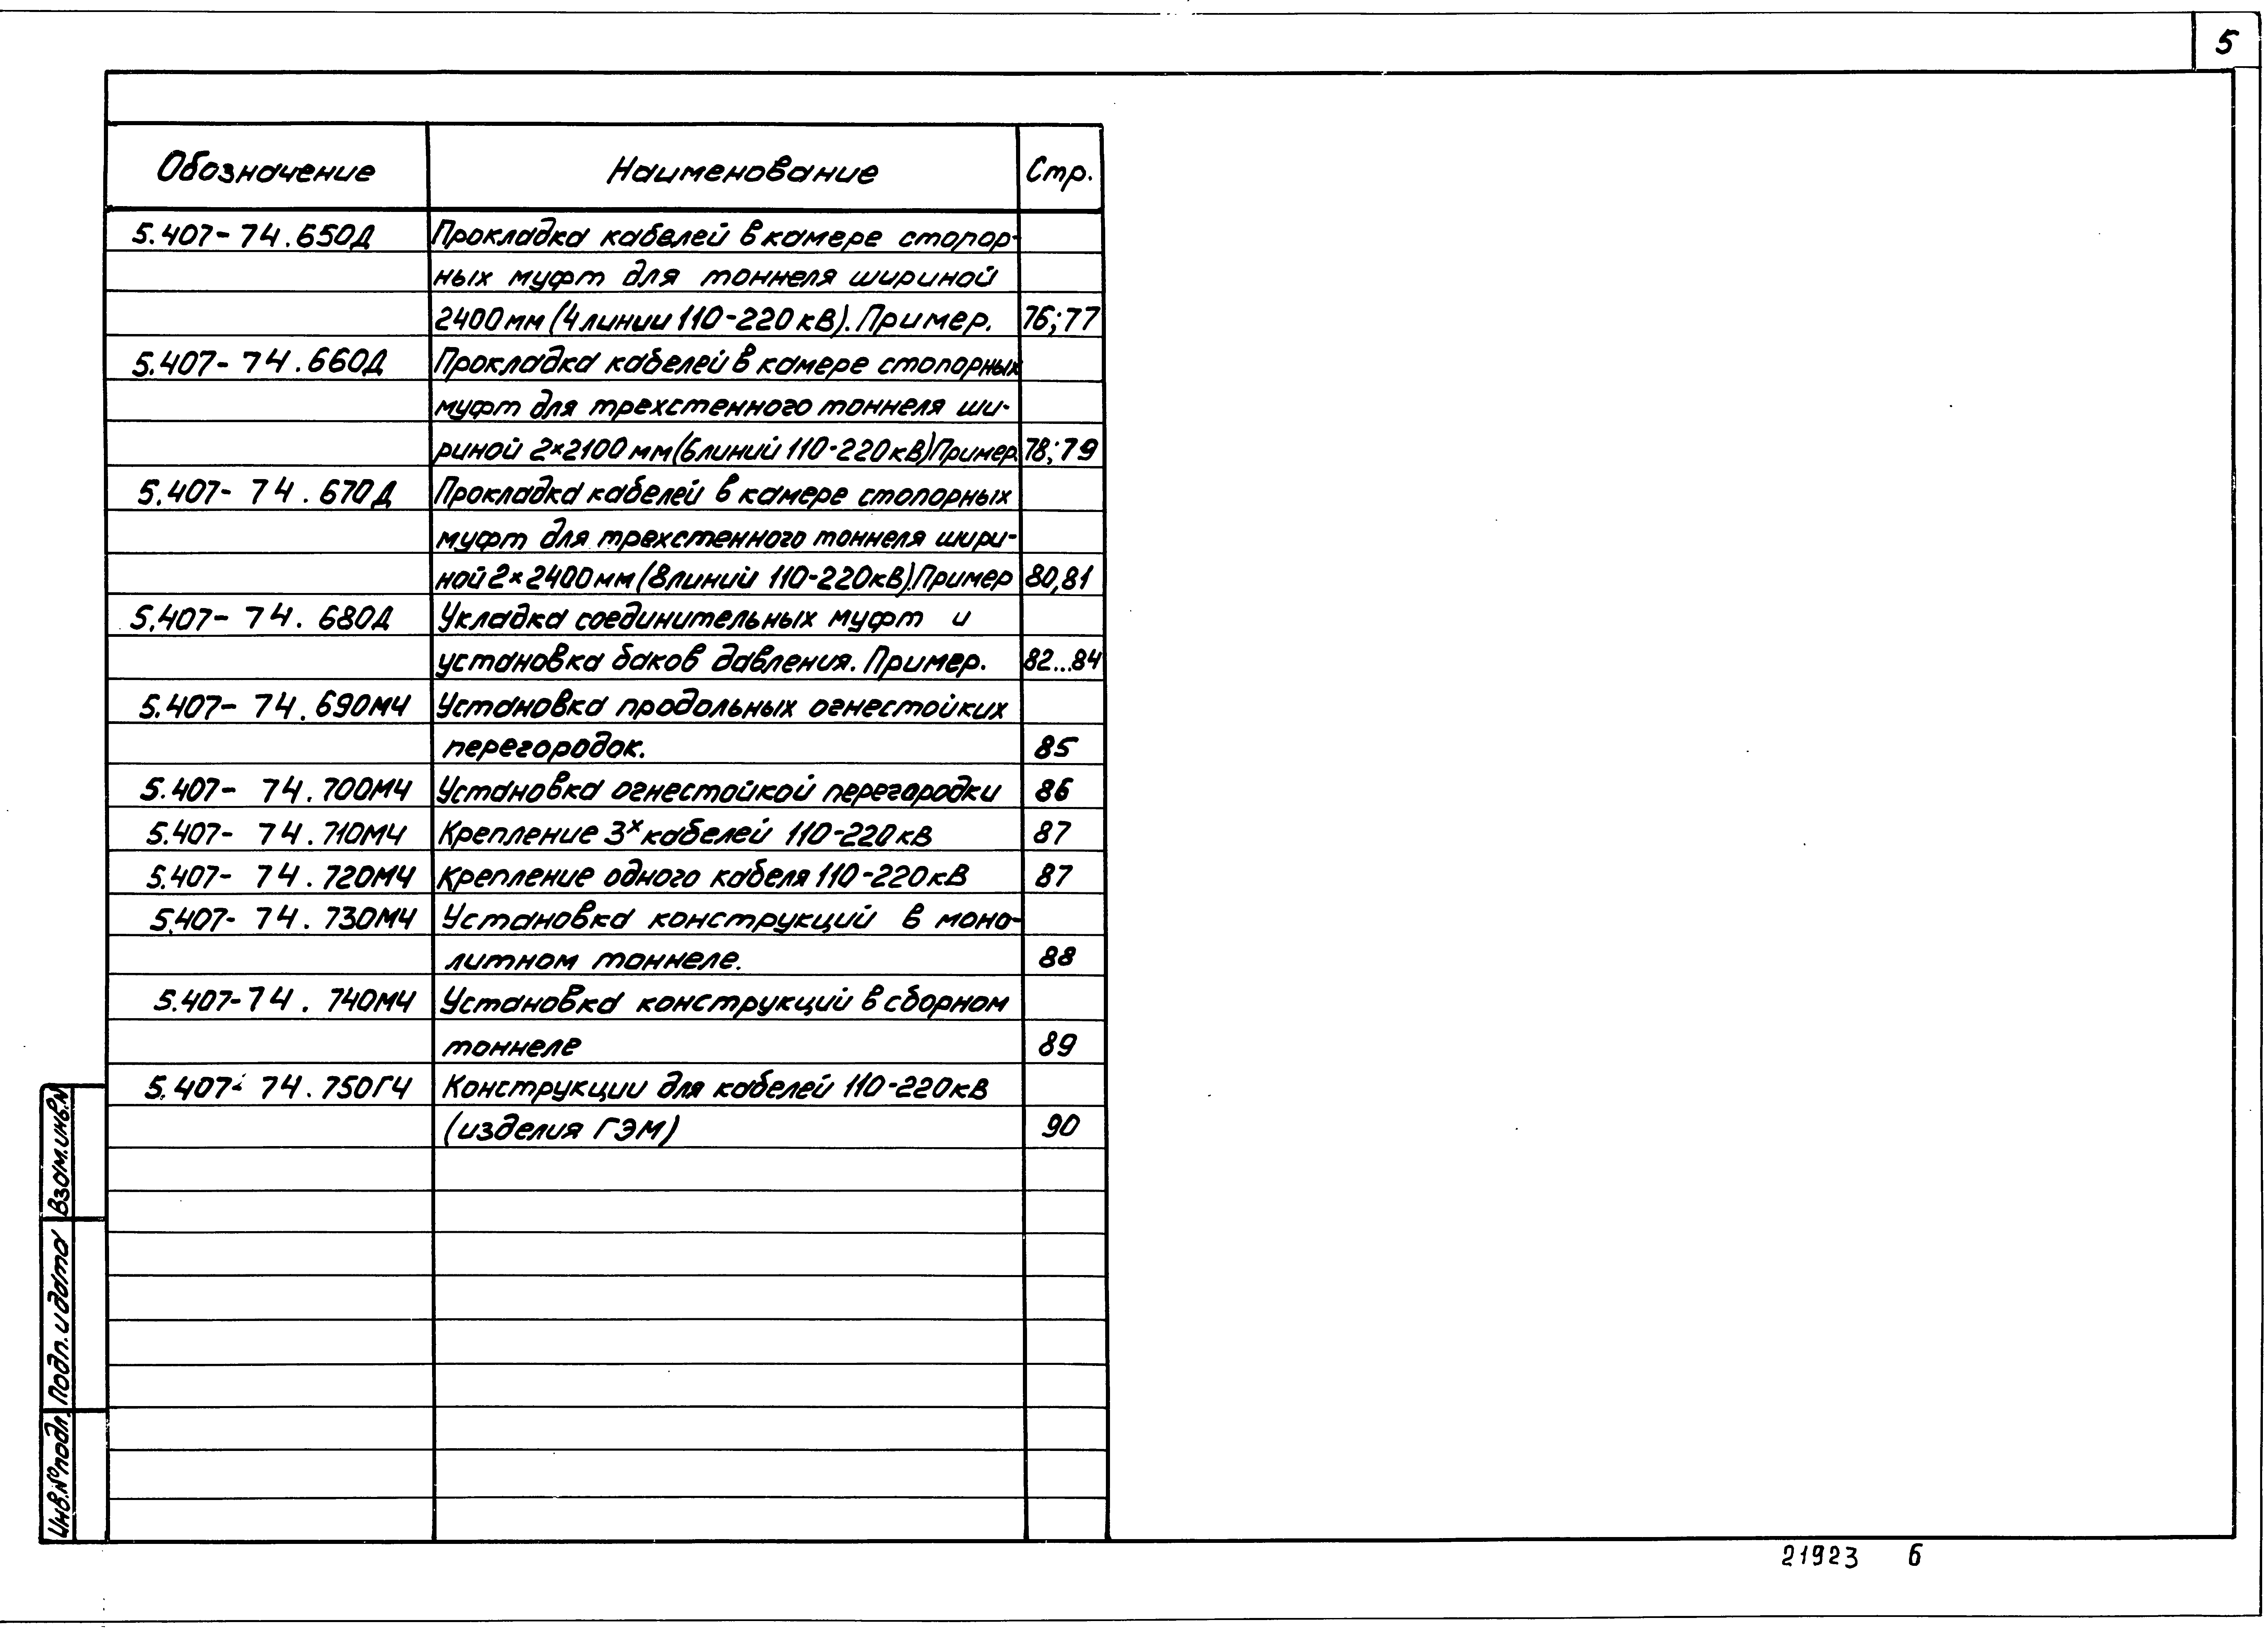 5
Обозначение Наименование Стр.
5.407-74.650Д Прокладка кабелей в камере стопор-
ных муфт для тоннеля шириной
2400 мм (4 линии 110-220 кВ). Пример. 76; 77
5.407-74.660Д Прокладка кабелей в камере стопорных
муфт для трехстенного тоннеля ши-
риной 2×2100 мм (6 линий 110-220 кВ) Пример. 78; 79
5.407-74.670Д Прокладка кабелей в камере стопорных
муфт для трехстенного тоннеля шири-
ной 2×2400 мм (8 линий 110-220 кВ). Пример 80, 81
5.407-74.680Д Укладка соединительных муфт и
установка баков давления. Пример. 82...84
5.407-74.690МЧ Установка продольных огнестойких
перегородок. 85
5.407-74.700МЧ Установка огнестойкой перегородки 86
5.407-74.710МЧ Крепление 3х кабелей 110-220 кВ 87
5.407-74.720МЧ Крепление одного кабеля 110-220 кВ 87
5.407-74.730МЧ Установка конструкций в моно-
литном тоннеле. 88
5.407-74.740МЧ Установка конструкций в сборном
тоннеле 89
5.407-74.750ГЧ Конструкции для кабелей 110-220 кВ
(изделия ГЭМ) 90
Взам. инв. N
Подп. и дата
Инв. № подл.
21923 6